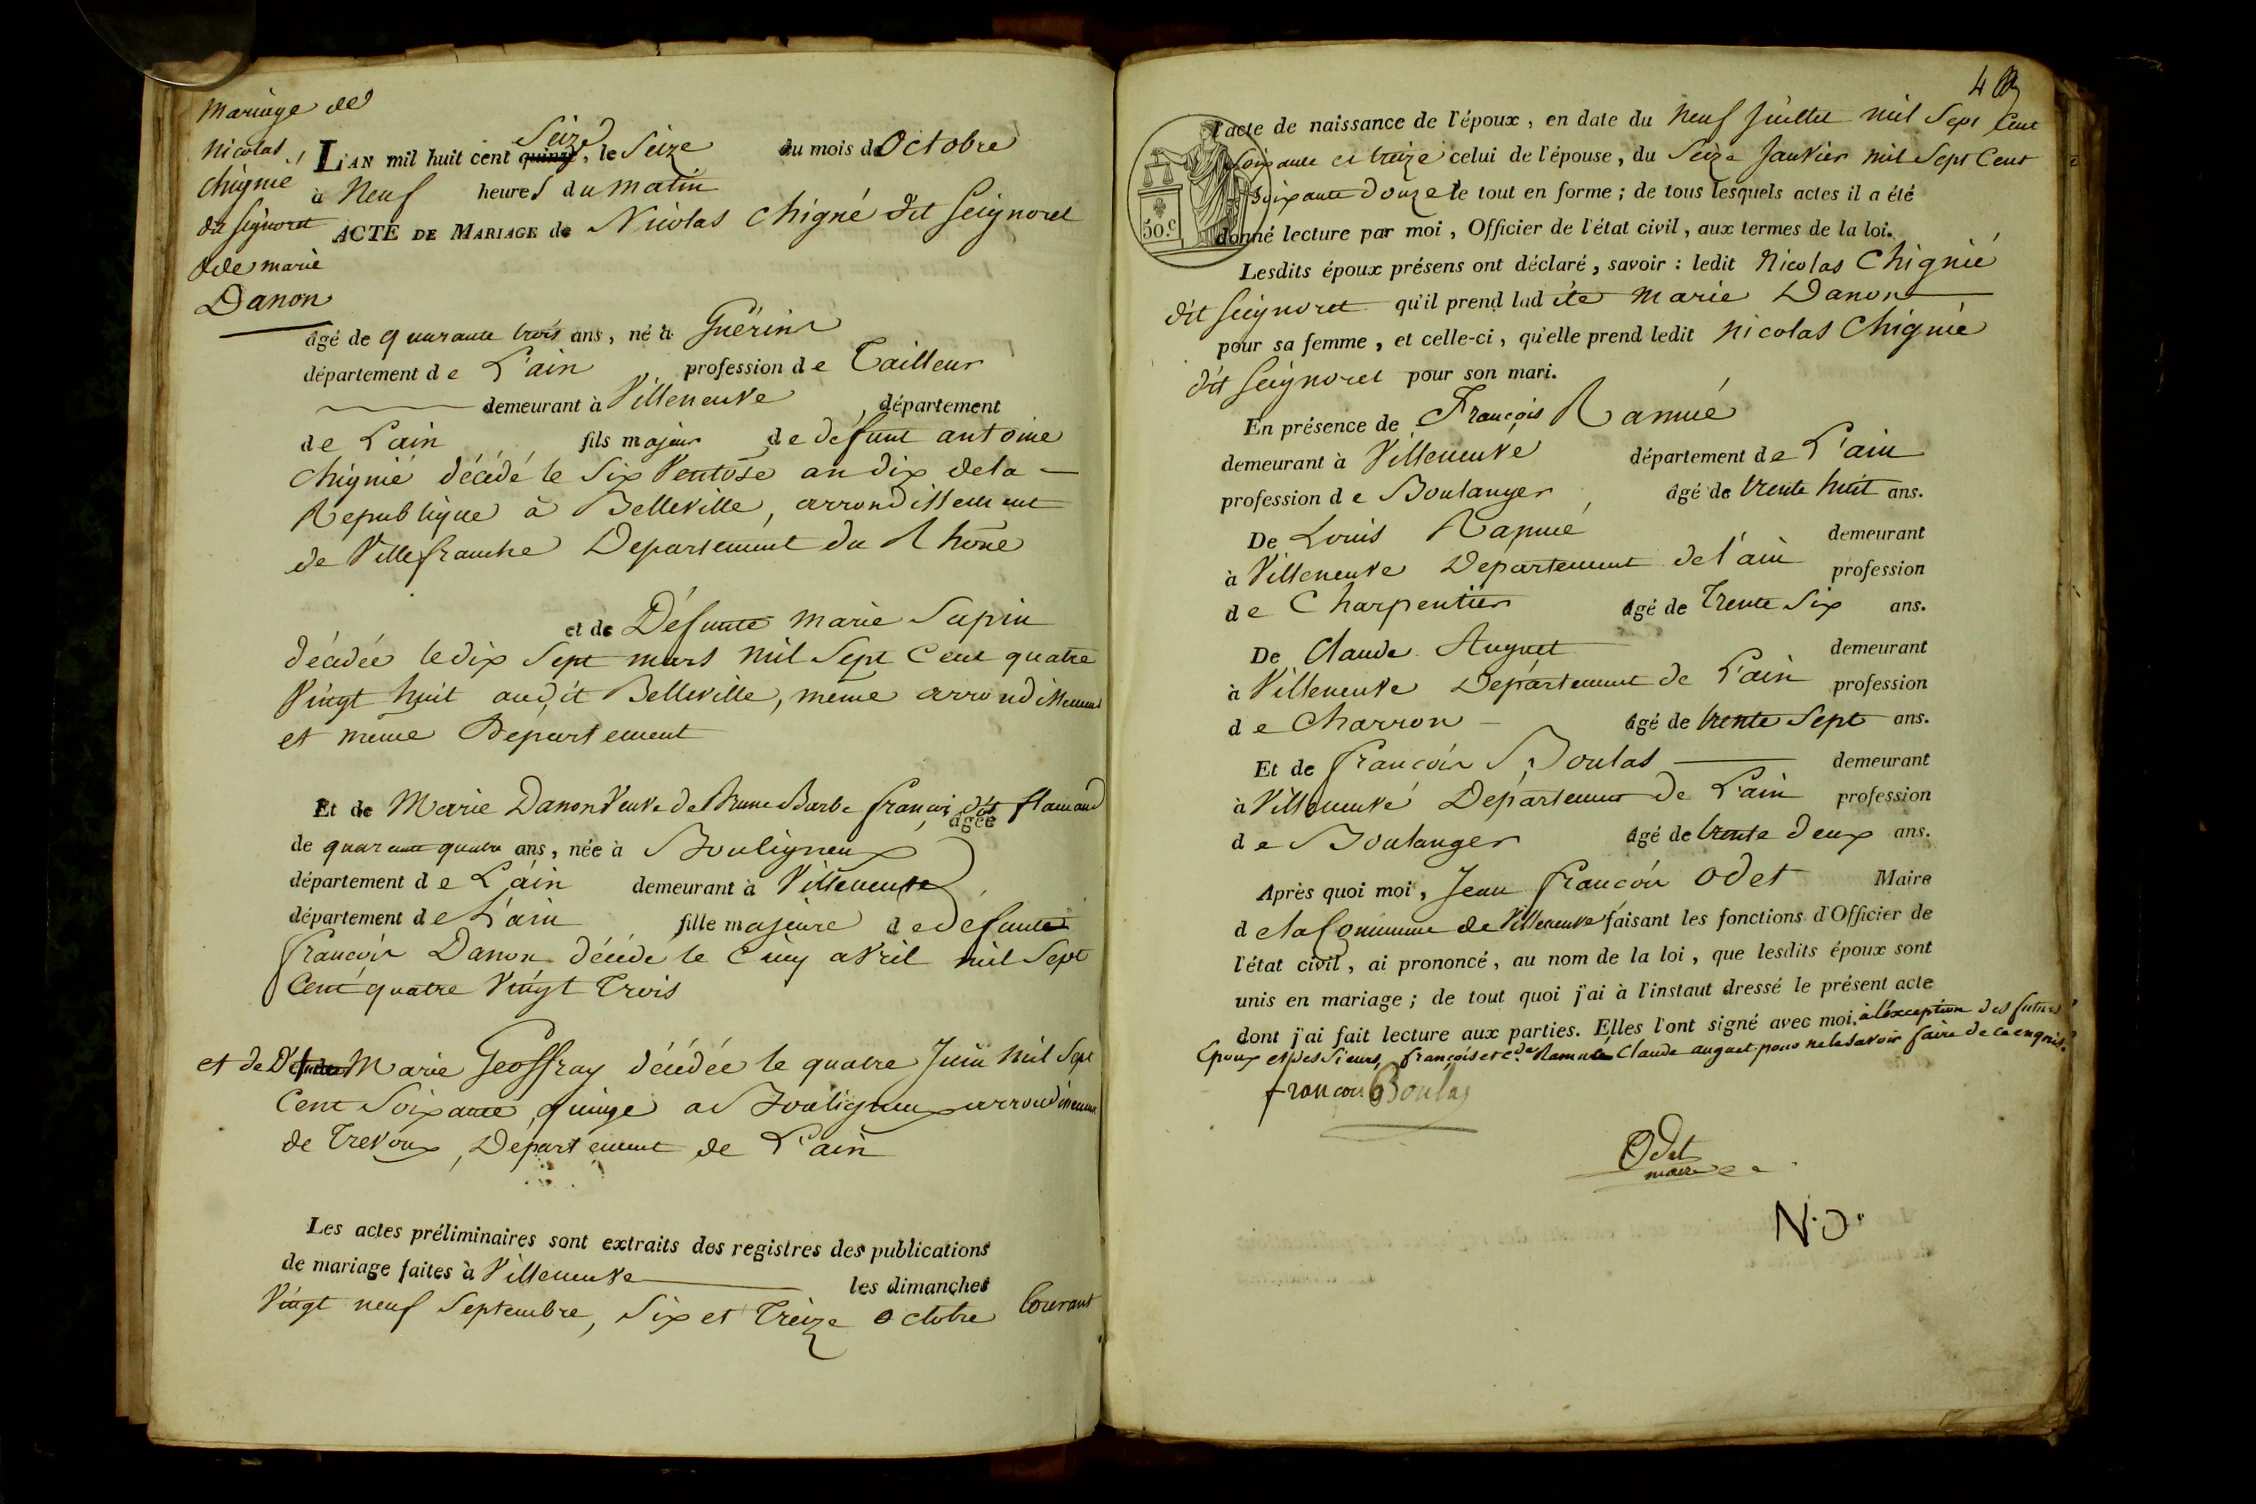 Mariage de
Nicolas
Chignié
dit Seignoret
& de marie
Danon
Seize
L'AN mil huit cent quinze, le Seize du mois de Octobre
à Neuf heures du matin
ACTE DE MARIAGE de Nicolas Chignié dit Seignoret
âgé de quarante trois ans, né à Guérins
département de L'ain profession de Tailleur
demeurant à Villeneuve, département
de L'ain fils majeur de defunt antoine
Chignié décédé le Six Ventôse an dix de la
Republique à Belleville, arrondissement
de Villefranche Departement du Rhône
et de Défunte marie Sapin
décédée le dix Sept mars mil Sept Cent quatre
Vingt huit audit Belleville, même arrondissement
et même Departement
Et de Marie Danon Veuve de Barbe françois dit flamand
âgée
de quarante quatre ans, née à Bouligneux
département de L'ain demeurant à Villeneuve
département de L'ain fille majeure de defunt
françois Danon décédé le Cinq avril mil Sept
Cent quatre Vingt Trois
et de Marie Geoffray décédée le quatre Juin mil Sept
Cent Soixante quinze a Bouligneux arrondissement
de Trevoux, Departement de L'ain
Les actes préliminaires sont extraits des registres des publications
de mariage faites à Villeneuve les dimanches
Vingt neuf Septembre, Six et Treize Octobre Courant
4
l'acte de naissance de l'époux, en date du Neuf Juillet mil Sept Cent
Soixante et treize celui de l'épouse, du Seize Janvier mil Sept Cent
Soixante Douze le tout en forme; de tous lesquels actes il a été
50.c
donné lecture par moi, Officier de l'état civil, aux termes de la loi.
Lesdits époux présens ont déclaré, savoir : ledit Nicolas Chignié
dit Seignoret qu'il prend ladite Marie Danon
pour sa femme, et celle-ci, qu'elle prend ledit Nicolas Chignié
dit Seignoret pour son mari.
En présence de François Ramué
demeurant à Villeneuve département de L'ain
profession de Boulanger, âgé de trente huit ans.
De Louis Ramué demeurant
à Villeneuve Departement de l'ain profession
de Charpentier âgé de Trente Six ans.
De Claude Auguet demeurant
à Villeneuve Département de L'ain profession
de Charron âgé de trente Sept ans.
Et de françois Boulas demeurant
à Villeneuve Département de L'ain profession
de Boulanger âgé de trente deux ans.
Après quoi moi, Jean françois Odet Maire
de la Commune de Villeneuve faisant les fonctions d'Officier de
l'état civil, ai prononcé, au nom de la loi, que lesdits époux sont
unis en mariage; de tout quoi j'ai à l'instant dressé le présent acte
dont j'ai fait lecture aux parties. Elles l'ont signé avec moi, à l'exception des futurs
Epoux et des Sieurs françois et Ramué Claude auguet pour ne le savoir faire de ce enquis.
françois Boulas
Odet
maire
N.O.